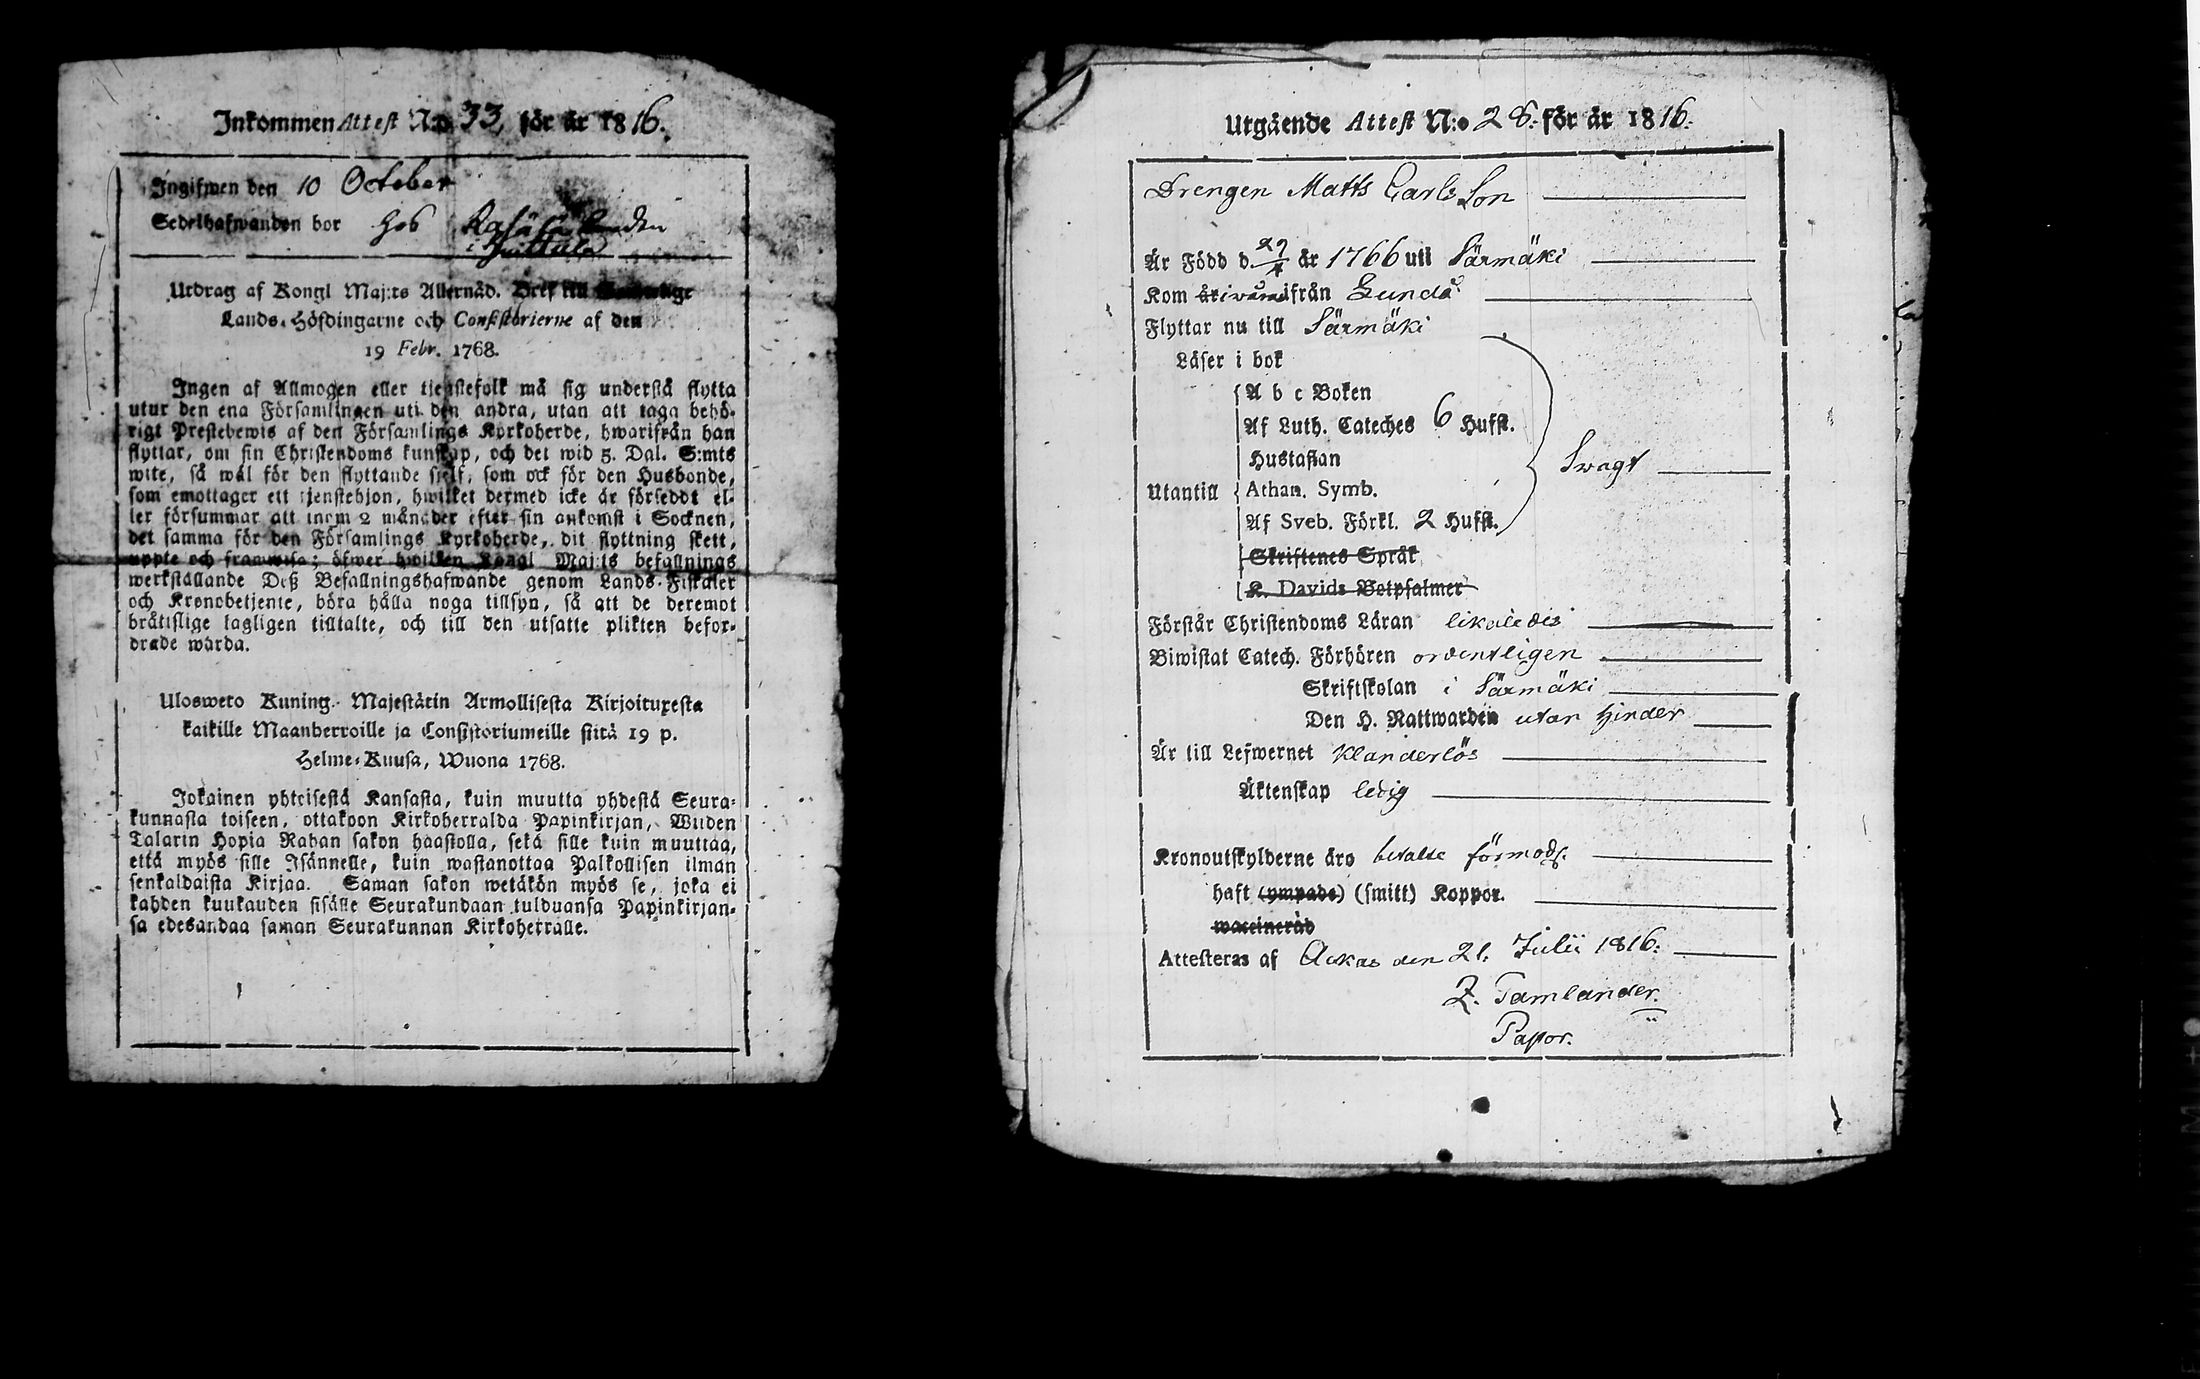 Inkommen Attest N:o 33, för år 1816.
Ingifwen den 10 October
Sedelhafwanden bor hos
i
Utdrag af Kongl Maj:ts Allernåd. Bref till
Lands-Höfdingarne och Consistorierne af den
19 Febr. 1768.
Ingen af Allmogen eller tjenstefolk må sig understå flytta
utur den ena Församlingen uti den andra, utan att taga behö-
rigt Prestebewis af den Församlings Kyrkoherde, hwarifrån han
flyttar, om sin Christendoms kunskap, och det wid 5. Dal. S:mts
wite, så wäl för den flyttande sjelf, som ock för den Husbonde,
som emottager ett tjenstehjon, hwilket dermed icke är försedt el-
ler försummar att inom 2 månader efter sin ankomst i Socknen,
det samma för den Församlings Kyrkoherde, dit flyttning skett,
uppte och framwisa; öfwer hwilken Kongl Maj:ts befallnings
werkställande Deß Befallningshafwande genom Lands-Fiskaler
och Kronobetjente, böra hålla noga tillsyn, så att de deremot
bråttslige lagligen tilltalte, och till den utsatte plikten befor-
drade warda.
Ulosweto Kuning. Majestätin Armollisesta Kirjoituxesta
kaikille Maanherroille ja Consistoriumeille siitä 19 p.
Helme-Kuusa, Wuona 1768.
Jokainen yhteisestä Kansasta, kuin muutta yhdestä Seura-
kunnasta toiseen, ottakoon Kirkoherralda Papinkirjan, Wiiden
Talarin Hopia Rahan sakon haastolla, sekä sille kuin muuttaa,
että myös sille Isännelle, kuin wastanottaa Palkollisen ilman
senkaldaista Kirjaa. Saman sakon wetäkön myös se, joka ei
kahden kuukauden sisälle Seurakundaan tulduansa Papinkirjan-
sa edesandaa saman Seurakunnan Kirkoherralle.
Utgående Attest N:o 28. för år 1816.
Drengen Matts Carls Son
Är Född d. 29/4 år 1766 uti Särmäki
Kom ifrån Lunda
Flyttar nu till Särmäki
Läser i bok
A b c Boken
Af Luth. Cateches 6 Hufst.
Hustaflan
Swagt
Utantill Athan. Symb.
Af Sveb. Förkl. 2 Hufst.
Skriftenes Språk
K. Davids Botpsalmer
Förstår Christendoms Läran likaledes
Biwistat Catech. Förhören ordentligen
Skriftskolan i Särmäki
Den H. Nattwarden utan hinder
Är till Lefwernet klanderlös
Äktenskap ledig
Kronoutskylderne äro betalte förmods.
haft (ympade) (smitt) Koppor.
waccinerad
Attesteras af Ackas den 21. Julii 1816.
Z. Tamlander.
Pastor.